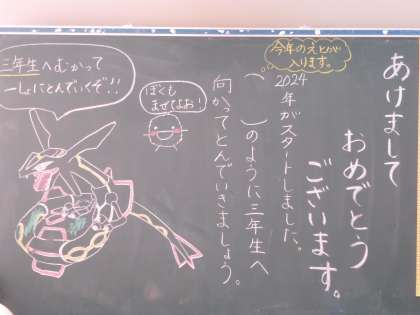 あけまして
おめでとう
ございます。
今年のえとが
入ります。
2024年がスタートしました。
(　)のように三年生へ
向かってとんでいきましょう。
ぼくも
まぜてよお!
三年生へむかって
一しょにとんでいくぞ!!